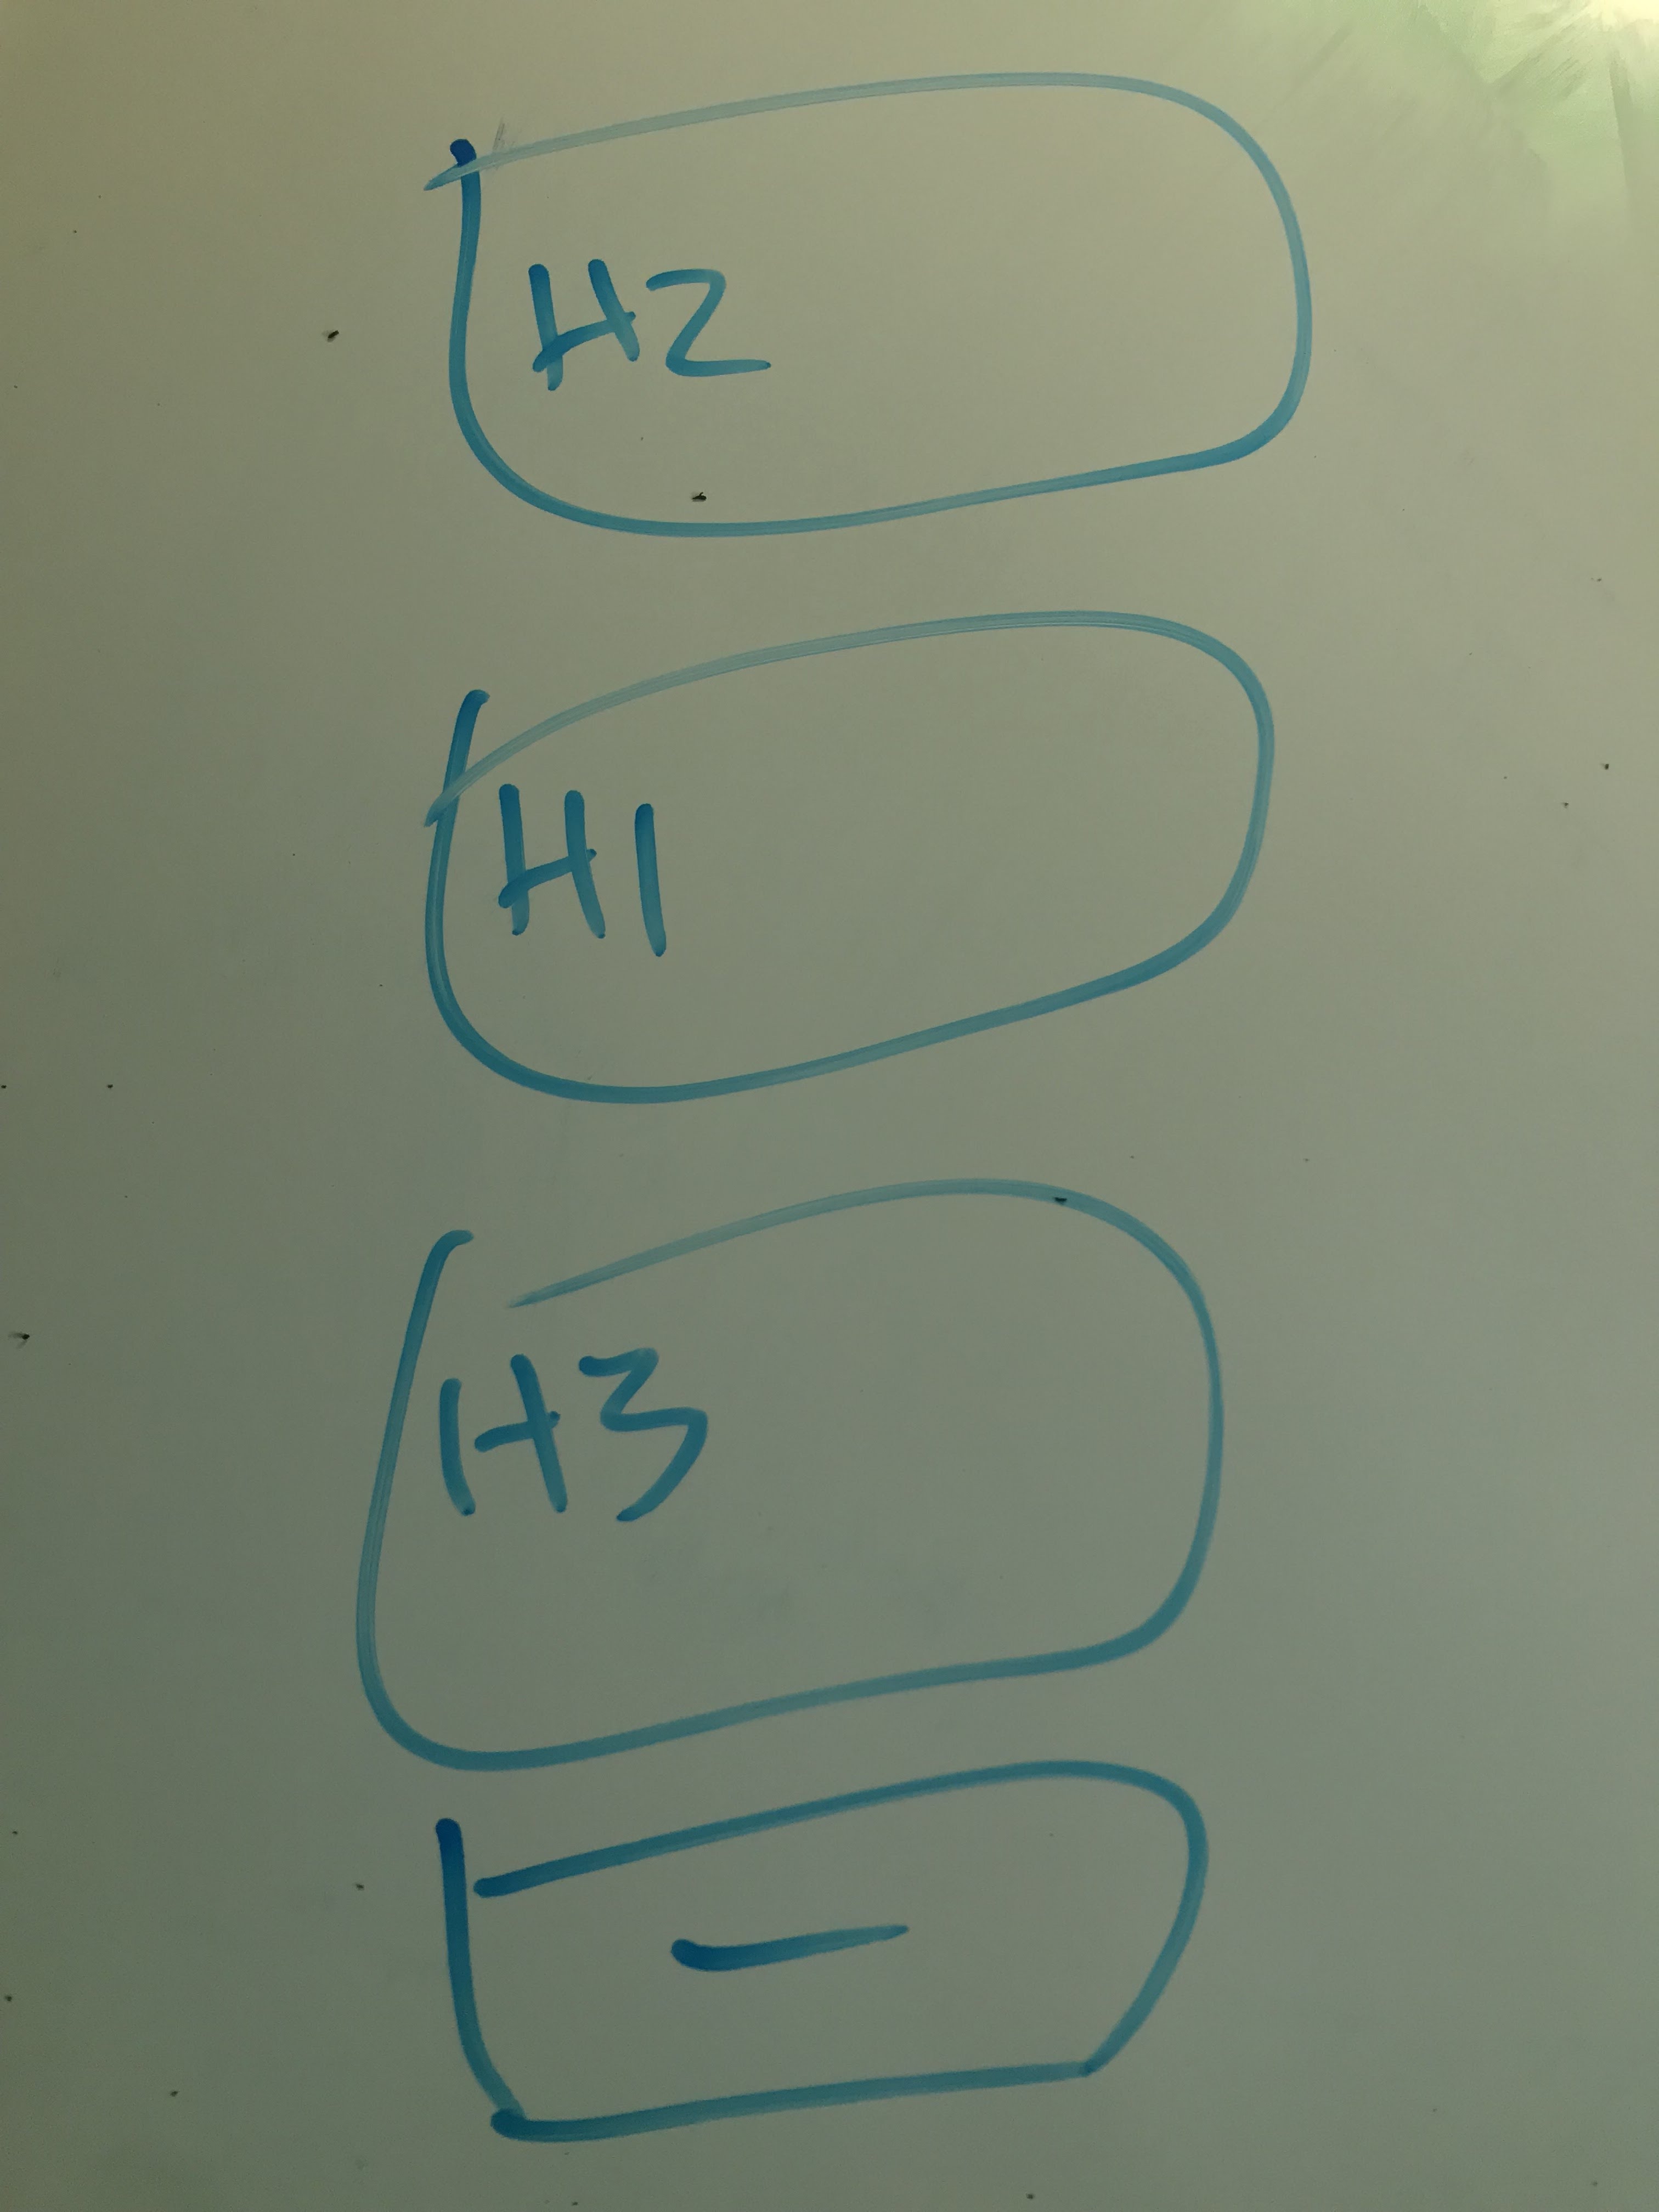 H2
H1
H3
—